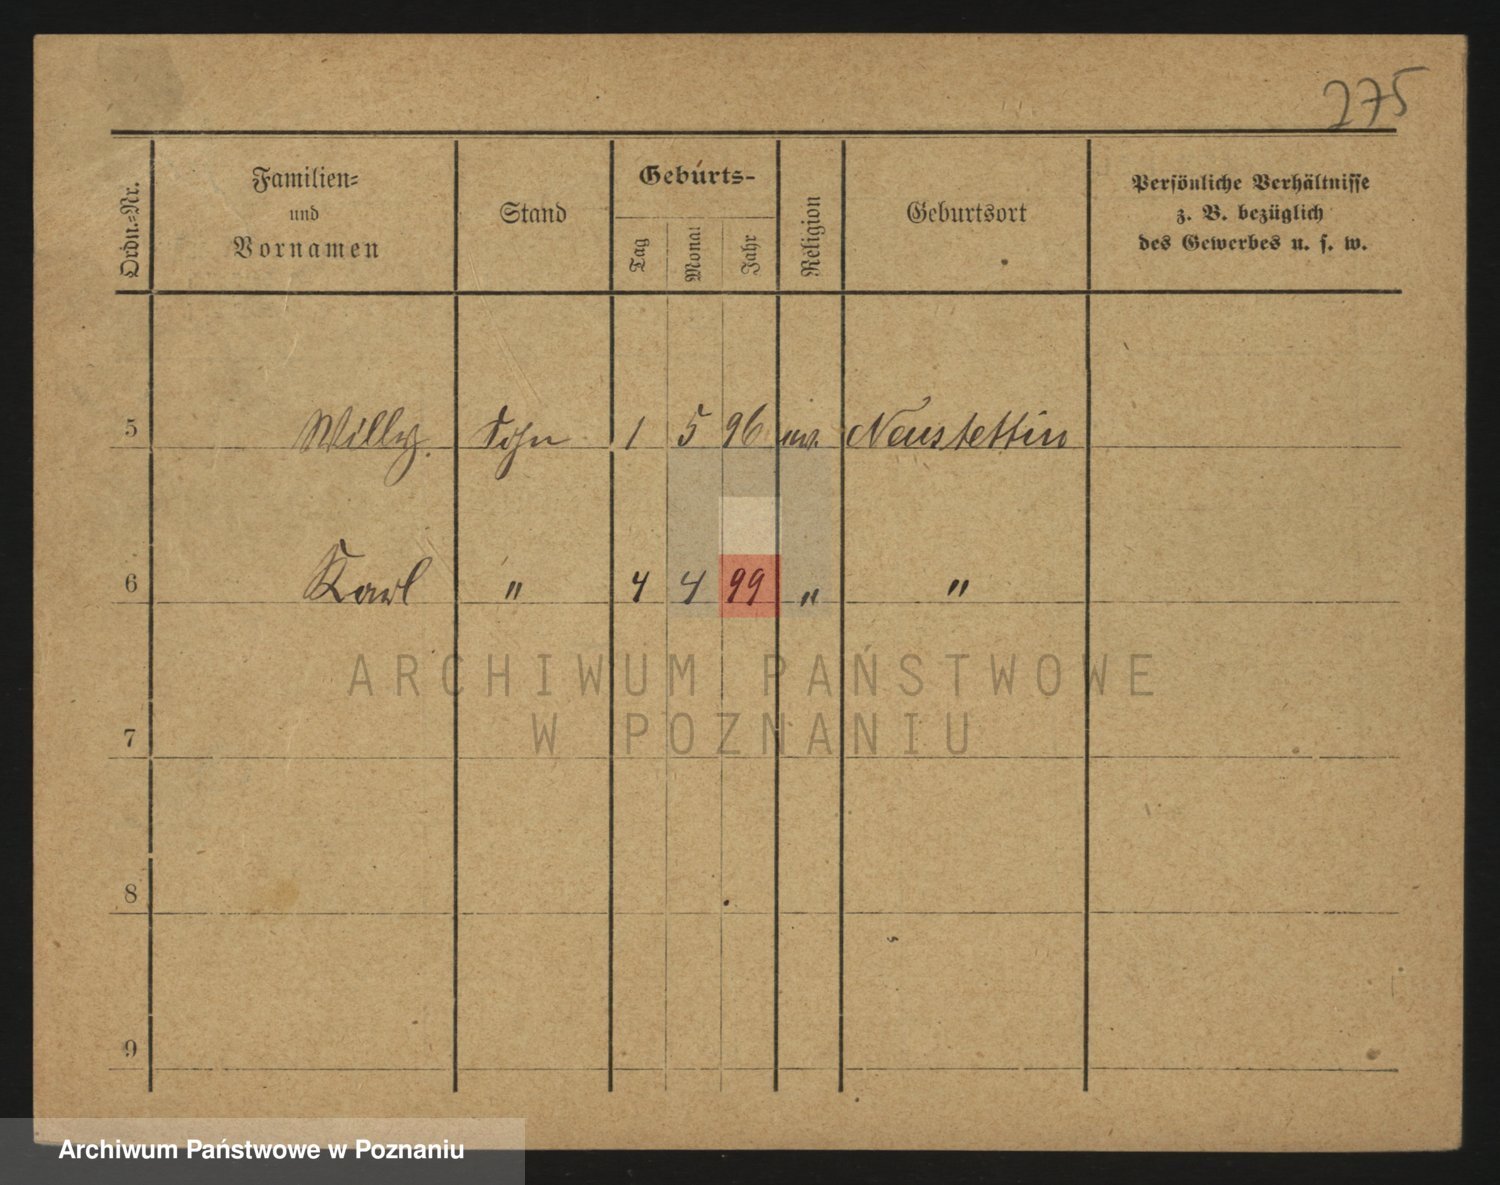 275
Ordn.-Nr.
Familien-
und
Vornamen
Stand
Geburts-
Tag
Monat
Jahr
Religion
Geburtsort
Persönliche Verhältnisse
z. B. bezüglich
des Gewerbes u. s. w.
5 Willy. Sohn 1 5 96 Neustettin
6 Karl " 4 4 99 " "
7
8
9
ARCHIWUM PAŃSTWOWE
W POZNANIU
Archiwum Państwowe w Poznaniu